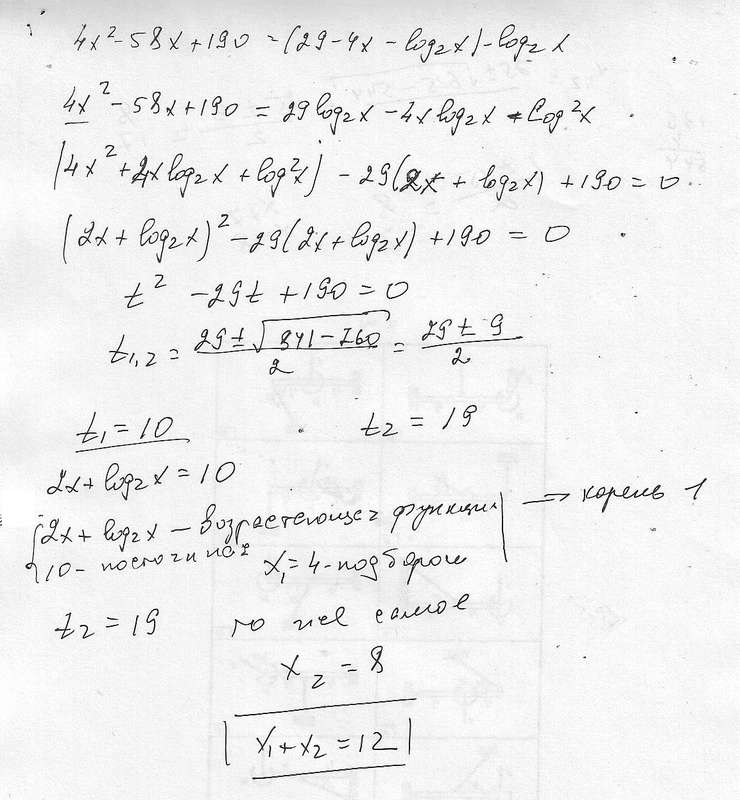 4x² - 58x + 190 = (29 - 4x - log₂x) · log₂x
4x² - 58x + 190 = 29log₂x - 4xlog₂x - log²x
(4x² + 4xlog₂x + log²x) - 29(2x + log₂x) + 190 = 0
(2x + log₂x)² - 29(2x + log₂x) + 190 = 0
t² - 29t + 190 = 0
t₁,₂ = (29 ± √(841 - 760))/2 = (29 ± 9)/2
t₁ = 10 t₂ = 19
2x + log₂x = 10
2x + log₂x - возрастающая функция → корень 1
10 - постоянная x₁ = 4 - подбором
t₂ = 19 то же самое
x₂ = 8
x₁ + x₂ = 12